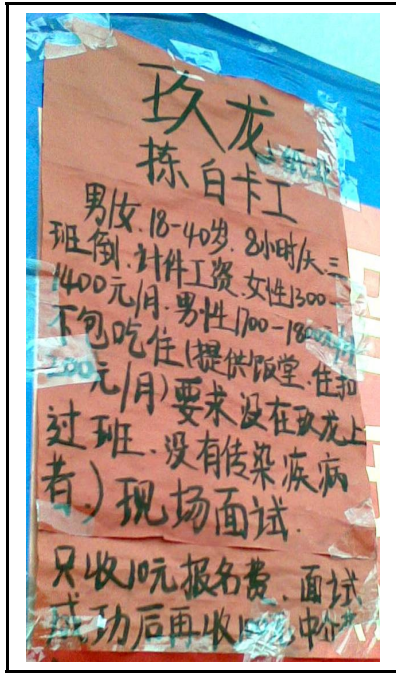 玖龙
纸业
拣白卡工
男女.18-40岁.8小时/天.三
班倒.计件工资.女性1300-
1400元/月.男性1700-1800元/月
不包吃住(提供饭堂.住扣
元/月)要求没在玖龙上
过班.没有传染疾病
者)现场面试.
只收10元报名费.面试
成功后再收 中介